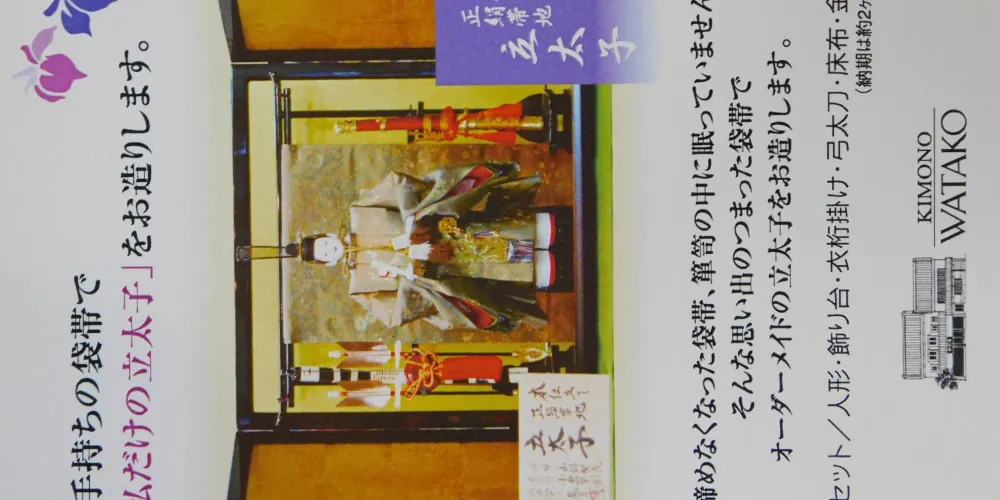 手持ちの袋帯で
私だけの立太子」をお造りします。
正絹帯地
立太子
本仕立て
正絹帯地
立太子
締めなくなった袋帯、箪笥の中に眠っていません
そんな思い出のつまった袋帯で
オーダーメイドの立太子をお造りします。
セット／人形・飾り台・衣桁掛け・弓太刀・床布・金
（納期は約2ヶ
KIMONO
WATAKO